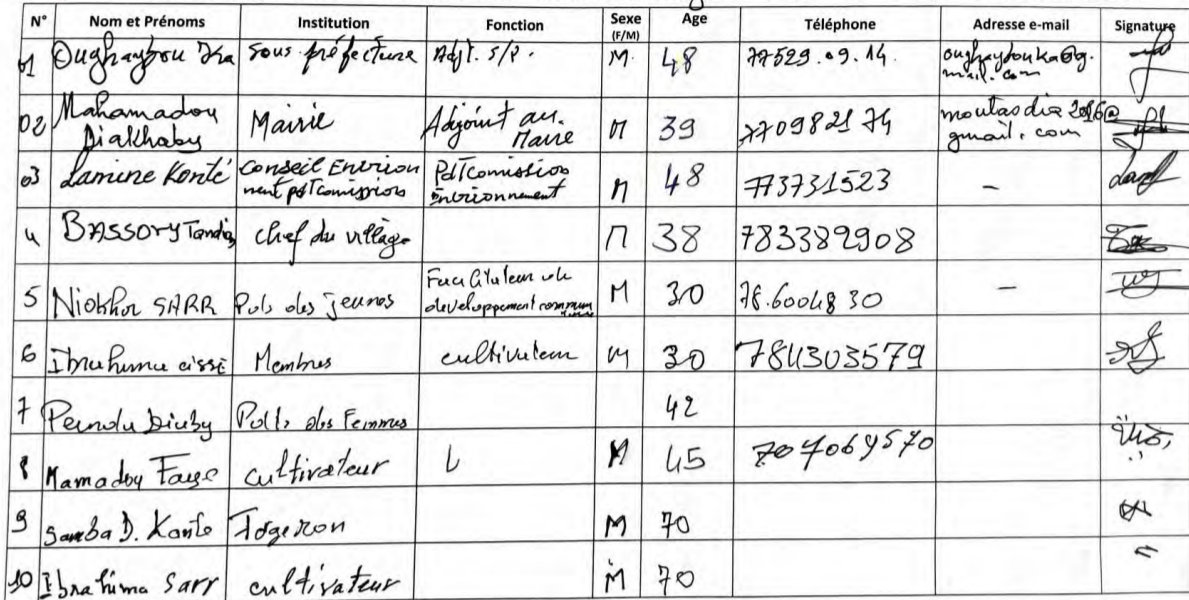 N° Nom et Prénoms Institution Fonction Sexe (F/M) Age Téléphone Adresse e-mail Signature
01 Oughaybou Ka Sous préfecture Adjt. S/P. M. 48 77529.09.14. oughaybouka@g.
mail.com
02 Mahamadou Diakhaby Mairie Adjoint au Maire M 39 770982174 moutasdia2016@
gmail.com
03 Lamine Konté Conseil Environ
nement pdt commission Pdt Comission
Environnement M 48 773731523 -
4 BASSORY Tandia chef du village M 38 783382908
5 Niokhor SARR Pdt des jeunes Facilitateur de
developpement M 30 78.6004830 -
6 Ibrahima cissé Membres cultivateur M 30 784303579
7 Penda Diaby des Femmes 42
8 Mamadou Faye cultivateur M 45 707069570
9 Samba D. Konte Forgeron M 70
10 Ibrahima Sarr cultivateur M 70